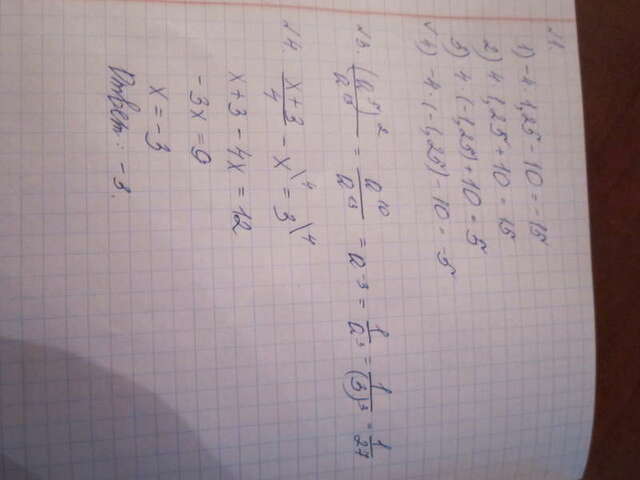 1) -4·1,25-10=-15
2) 4·1,25+10=15
3) 4·(-1,25)+10=5
√4) -4·(-1,25)-10=-5
№3. (a⁵)²/a¹³ = a¹⁰/a¹³ = a⁻³ = 1/a³ = 1/(3)³ = 1/27
№4. (x+3)/4 - x\⁴ = 3\⁴
x+3-4x=12
-3x=9
x=-3
Ответ: -3.